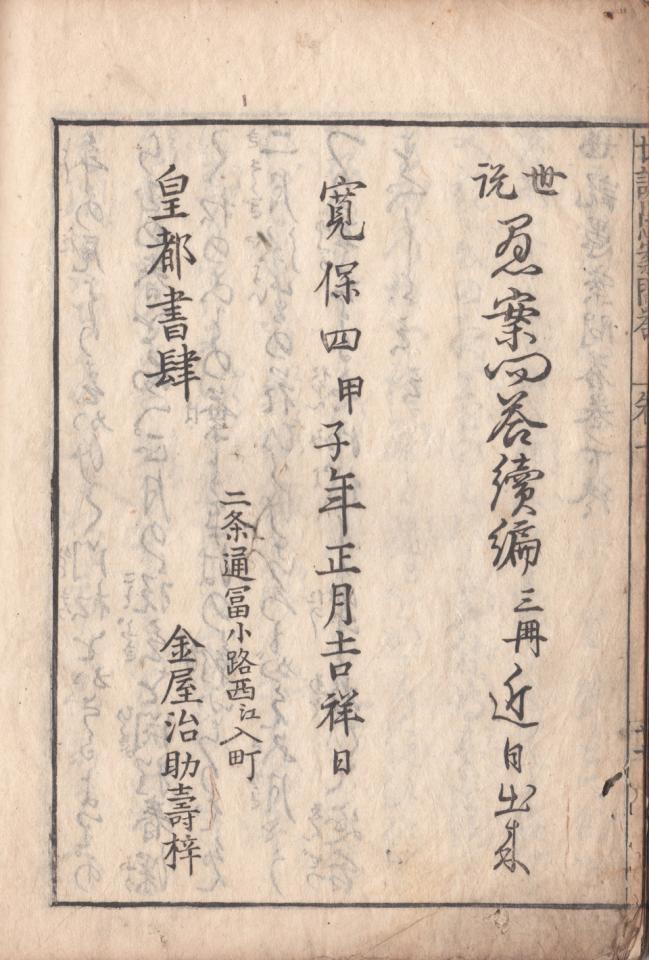 世説愚案問答續編三冊近日出来
寛保四甲子年正月吉祥日
二条通冨小路西江入町
皇都書肆
金屋治助壽梓